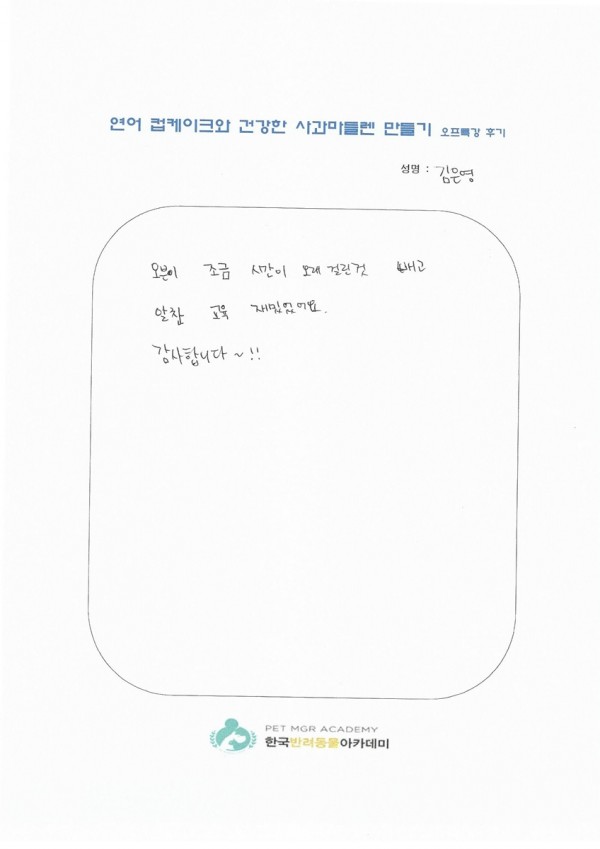 연어 컵케이크와 건강한 사과마들렌 만들기 오프특강 후기
성명 : 김은영
오븐이 조금 시간이 오래 걸린것 빼고
알찬 교육 재밌었어요.
감사합니다~!!
PET MGR ACADEMY
한국반려동물아카데미